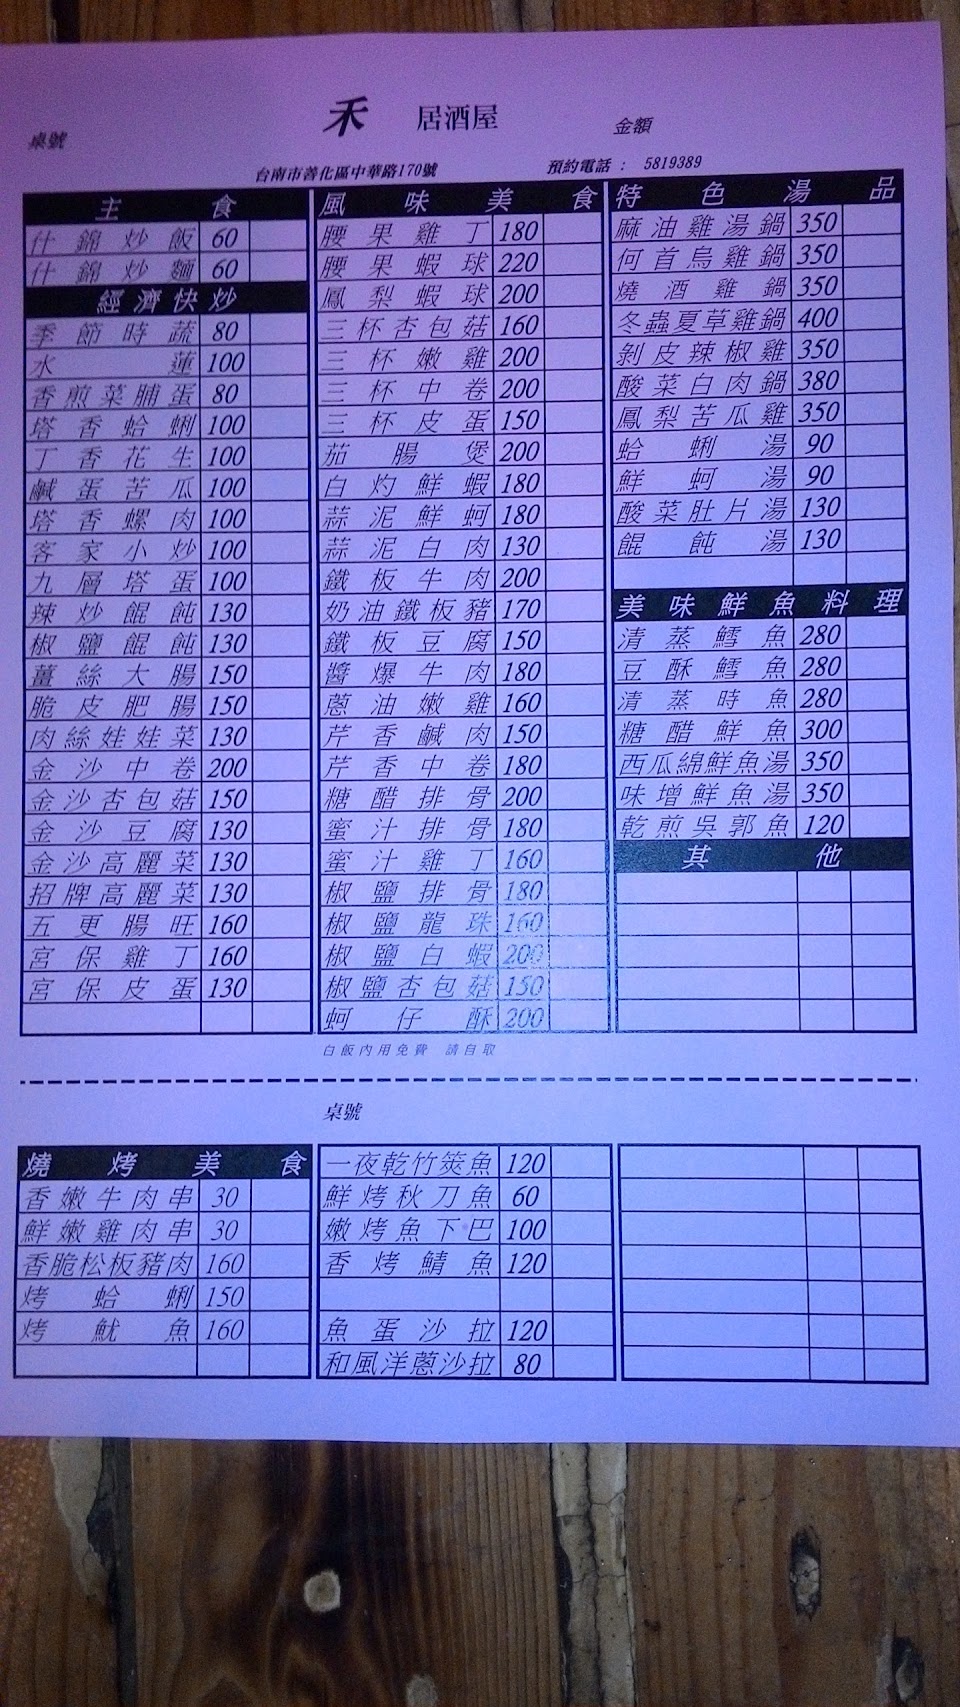 禾 居酒屋
桌號
金額
台南市善化區中華路170號
預約電話: 5819389
主食
什錦炒飯 60
什錦炒麵 60
經濟快炒
季節時蔬 80
水蓮 100
香煎菜脯蛋 80
塔香蛤蜊 100
丁香花生 100
鹹蛋苦瓜 100
塔香螺肉 100
客家小炒 100
九層塔蛋 100
辣炒餛飩 130
椒鹽餛飩 130
薑絲大腸 150
脆皮肥腸 150
肉絲娃娃菜 130
金沙中卷 200
金沙杏包菇 150
金沙豆腐 130
金沙高麗菜 130
招牌高麗菜 130
五更腸旺 160
宮保雞丁 160
宮保皮蛋 130
風味美食
腰果雞丁 180
腰果蝦球 220
鳳梨蝦球 200
三杯杏包菇 160
三杯嫩雞 200
三杯中卷 200
三杯皮蛋 150
茄腸煲 200
白灼鮮蝦 180
蒜泥鮮蚵 180
蒜泥白肉 130
鐵板牛肉 200
奶油鐵板豬 170
鐵板豆腐 150
醬爆牛肉 180
蔥油嫩雞 160
芹香鹹肉 150
芹香中卷 180
糖醋排骨 200
蜜汁排骨 180
蜜汁雞丁 160
椒鹽排骨 180
椒鹽龍珠 160
椒鹽白蝦 200
椒鹽杏包菇 150
蚵仔酥 200
特色湯品
麻油雞湯鍋 350
何首烏雞鍋 350
燒酒雞鍋 350
冬蟲夏草雞鍋 400
剝皮辣椒雞 350
酸菜白肉鍋 380
鳳梨苦瓜雞 350
蛤蜊湯 90
鮮蚵湯 90
酸菜肚片湯 130
餛飩湯 130
美味鮮魚料理
清蒸鱈魚 280
豆酥鱈魚 280
清蒸時魚 280
糖醋鮮魚 300
西瓜綿鮮魚湯 350
味增鮮魚湯 350
乾煎吳郭魚 120
其他
白飯內用免費 請自取
桌號
燒烤美食
香嫩牛肉串 30
鮮嫩雞肉串 30
香脆松板豬肉 160
烤蛤蜊 150
烤魷魚 160
一夜乾竹筴魚 120
鮮烤秋刀魚 60
嫩烤魚下巴 100
香烤鯖魚 120
魚蛋沙拉 120
和風洋蔥沙拉 80